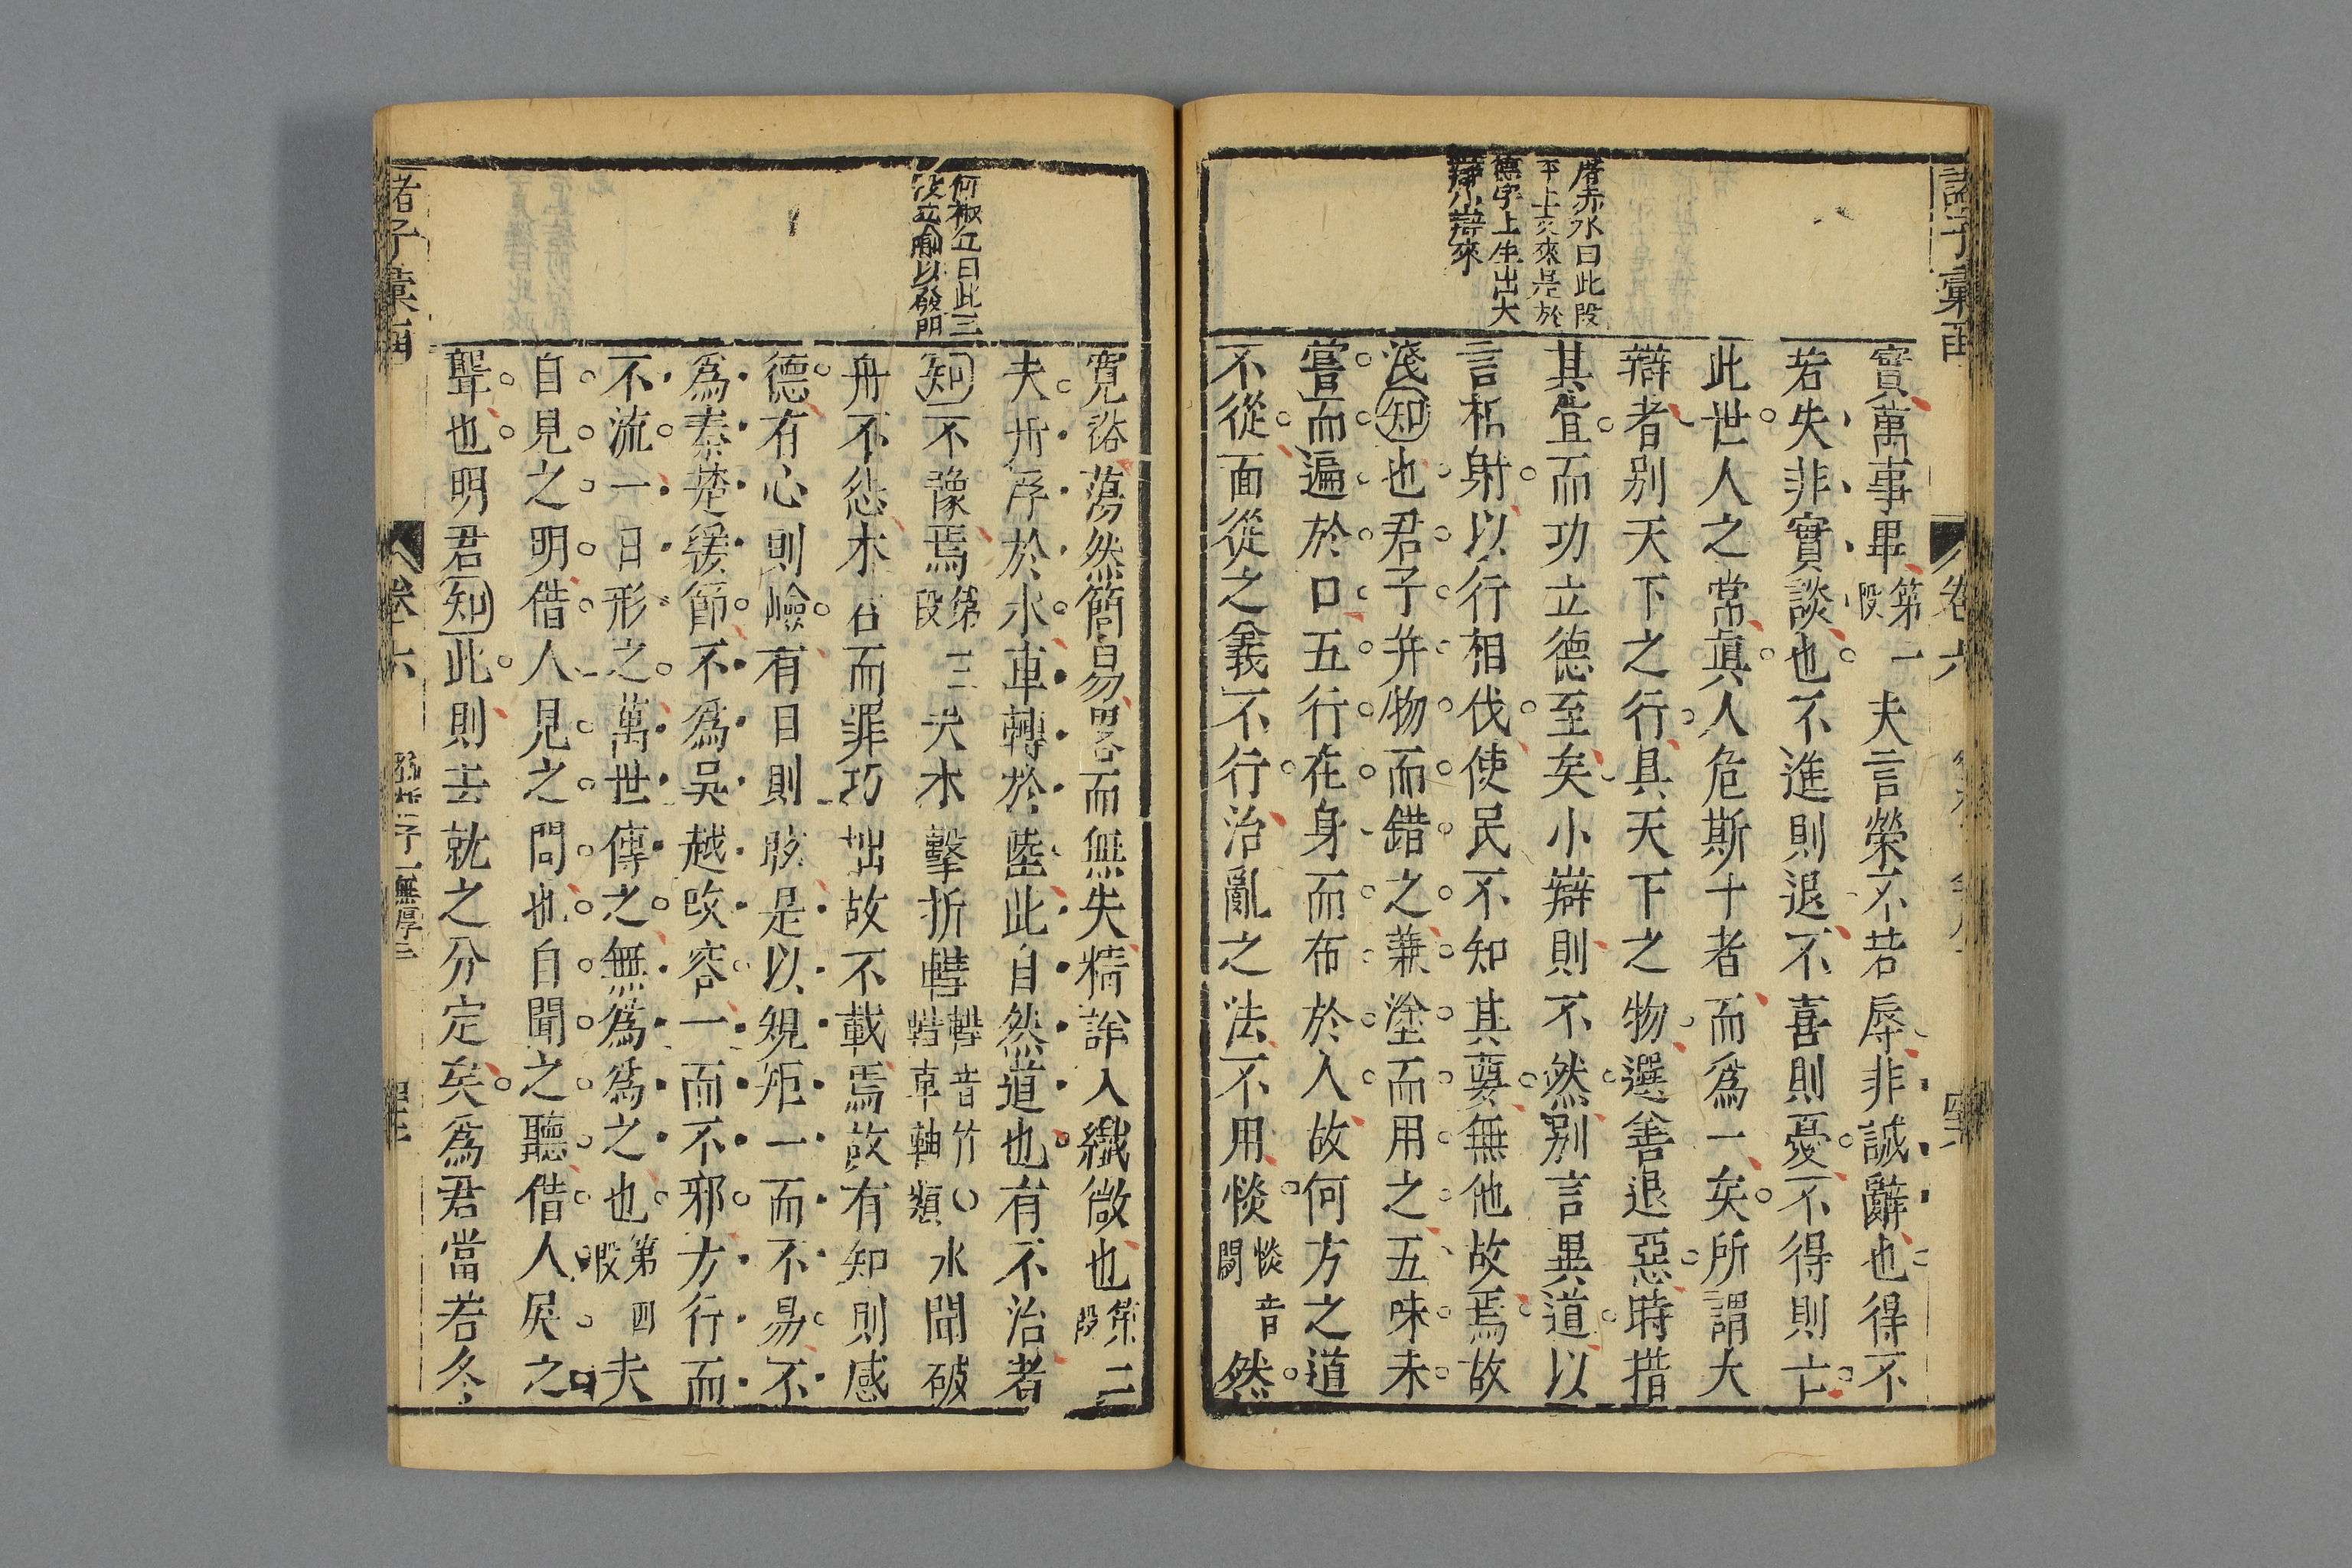 諸子彙函
卷六
屠赤水曰此段
平上文來是於
德字上生出大
辯小辯來
實萬事畢第一段夫言榮不若辱非誠辭也得不
若失非實談也不進則退不喜則憂不得則亡
此世人之常眞人危斯十者而爲一矣所謂大
辯者别天下之行具天下之物選善退惡時措
其宜而功立德至矣小辯則不然别言異道以
言相射以行相伐使民不知其要無他故焉故
淺知也君子并物而錯之兼塗而用之五味未
嘗而遍於口五行在身而布於人故何方之道
不從面從之義不行治亂之法不用惔惔音闕然
何椒丘曰此三
段立喻以發明
寬裕蕩然簡易畧而無失精詳入纖微也第二段
夫舟浮於水車轉於陸此自然道也有不治者
知不豫焉第三段夫木擊折轊轊音竹○轊車軸頭水閒破
舟不怨木石而罪巧拙故不載焉故有知則感
德有心則嶮有目則眩是以規矩一而不易不
爲秦楚緩節不爲吳越攺容一而不邪方行而
不流一日形之萬世傳之無爲爲之也第四段夫
自見之明借人見之問也自聞之聽借人𠋫之
聾也明君知此則去就之分定矣爲君當若冬
諸子彙函
卷六
鄧析子
無厚三